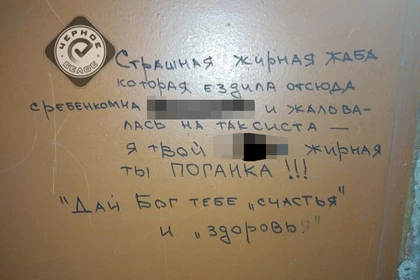 ЧЕРНОЕ
БЕЛОЕ
СТРАШНАЯ ЖИРНАЯ ЖАБА
КОТОРАЯ ЕЗДИЛА ОТСЮДА
СРЕБЕНКОМНА И ЖАЛОВА-
ЛАСЬ НА ТАКСИСТА —
Я ТВОЙ ЖИРНАЯ
ТЫ ПОГАНКА !!!
"ДАЙ БОГ ТЕБЕ „СЧАСТЬЯ"
И „ЗДОРОВЬЯ"